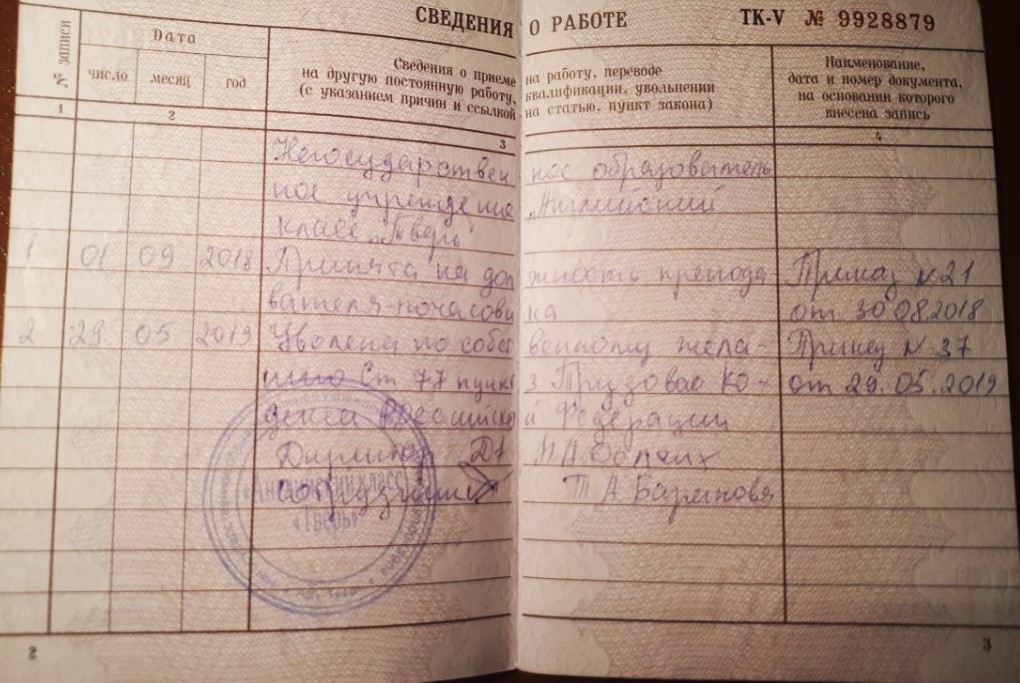 СВЕДЕНИЯ О РАБОТЕ ТК-V № 9928879
№ записи
Дата
число месяц год
Сведения о приеме на работу, переводе
на другую постоянную работу, квалификации, увольнении
(с указанием причин и ссылкой на статью, пункт закона)
Наименование,
дата и номер документа,
на основании которого
внесена запись
1 2 3 4
Негосударствен ное образователь
ное учреждение „Английский
класс „Тверь"
1 01 09 2018 Принята на дол жность препода- Приказ №21
вателя-почасови ка от 30.08.2018
2 29 05 2019 Уволена по собст венному жела- Приказ № 37
Ст 77 пункт 3 Трудового Ко- от 29.05.2019
декса Российско й Федерации
Директор
Сотрудник Т А
«Английский класс
«Тверь»
2 3